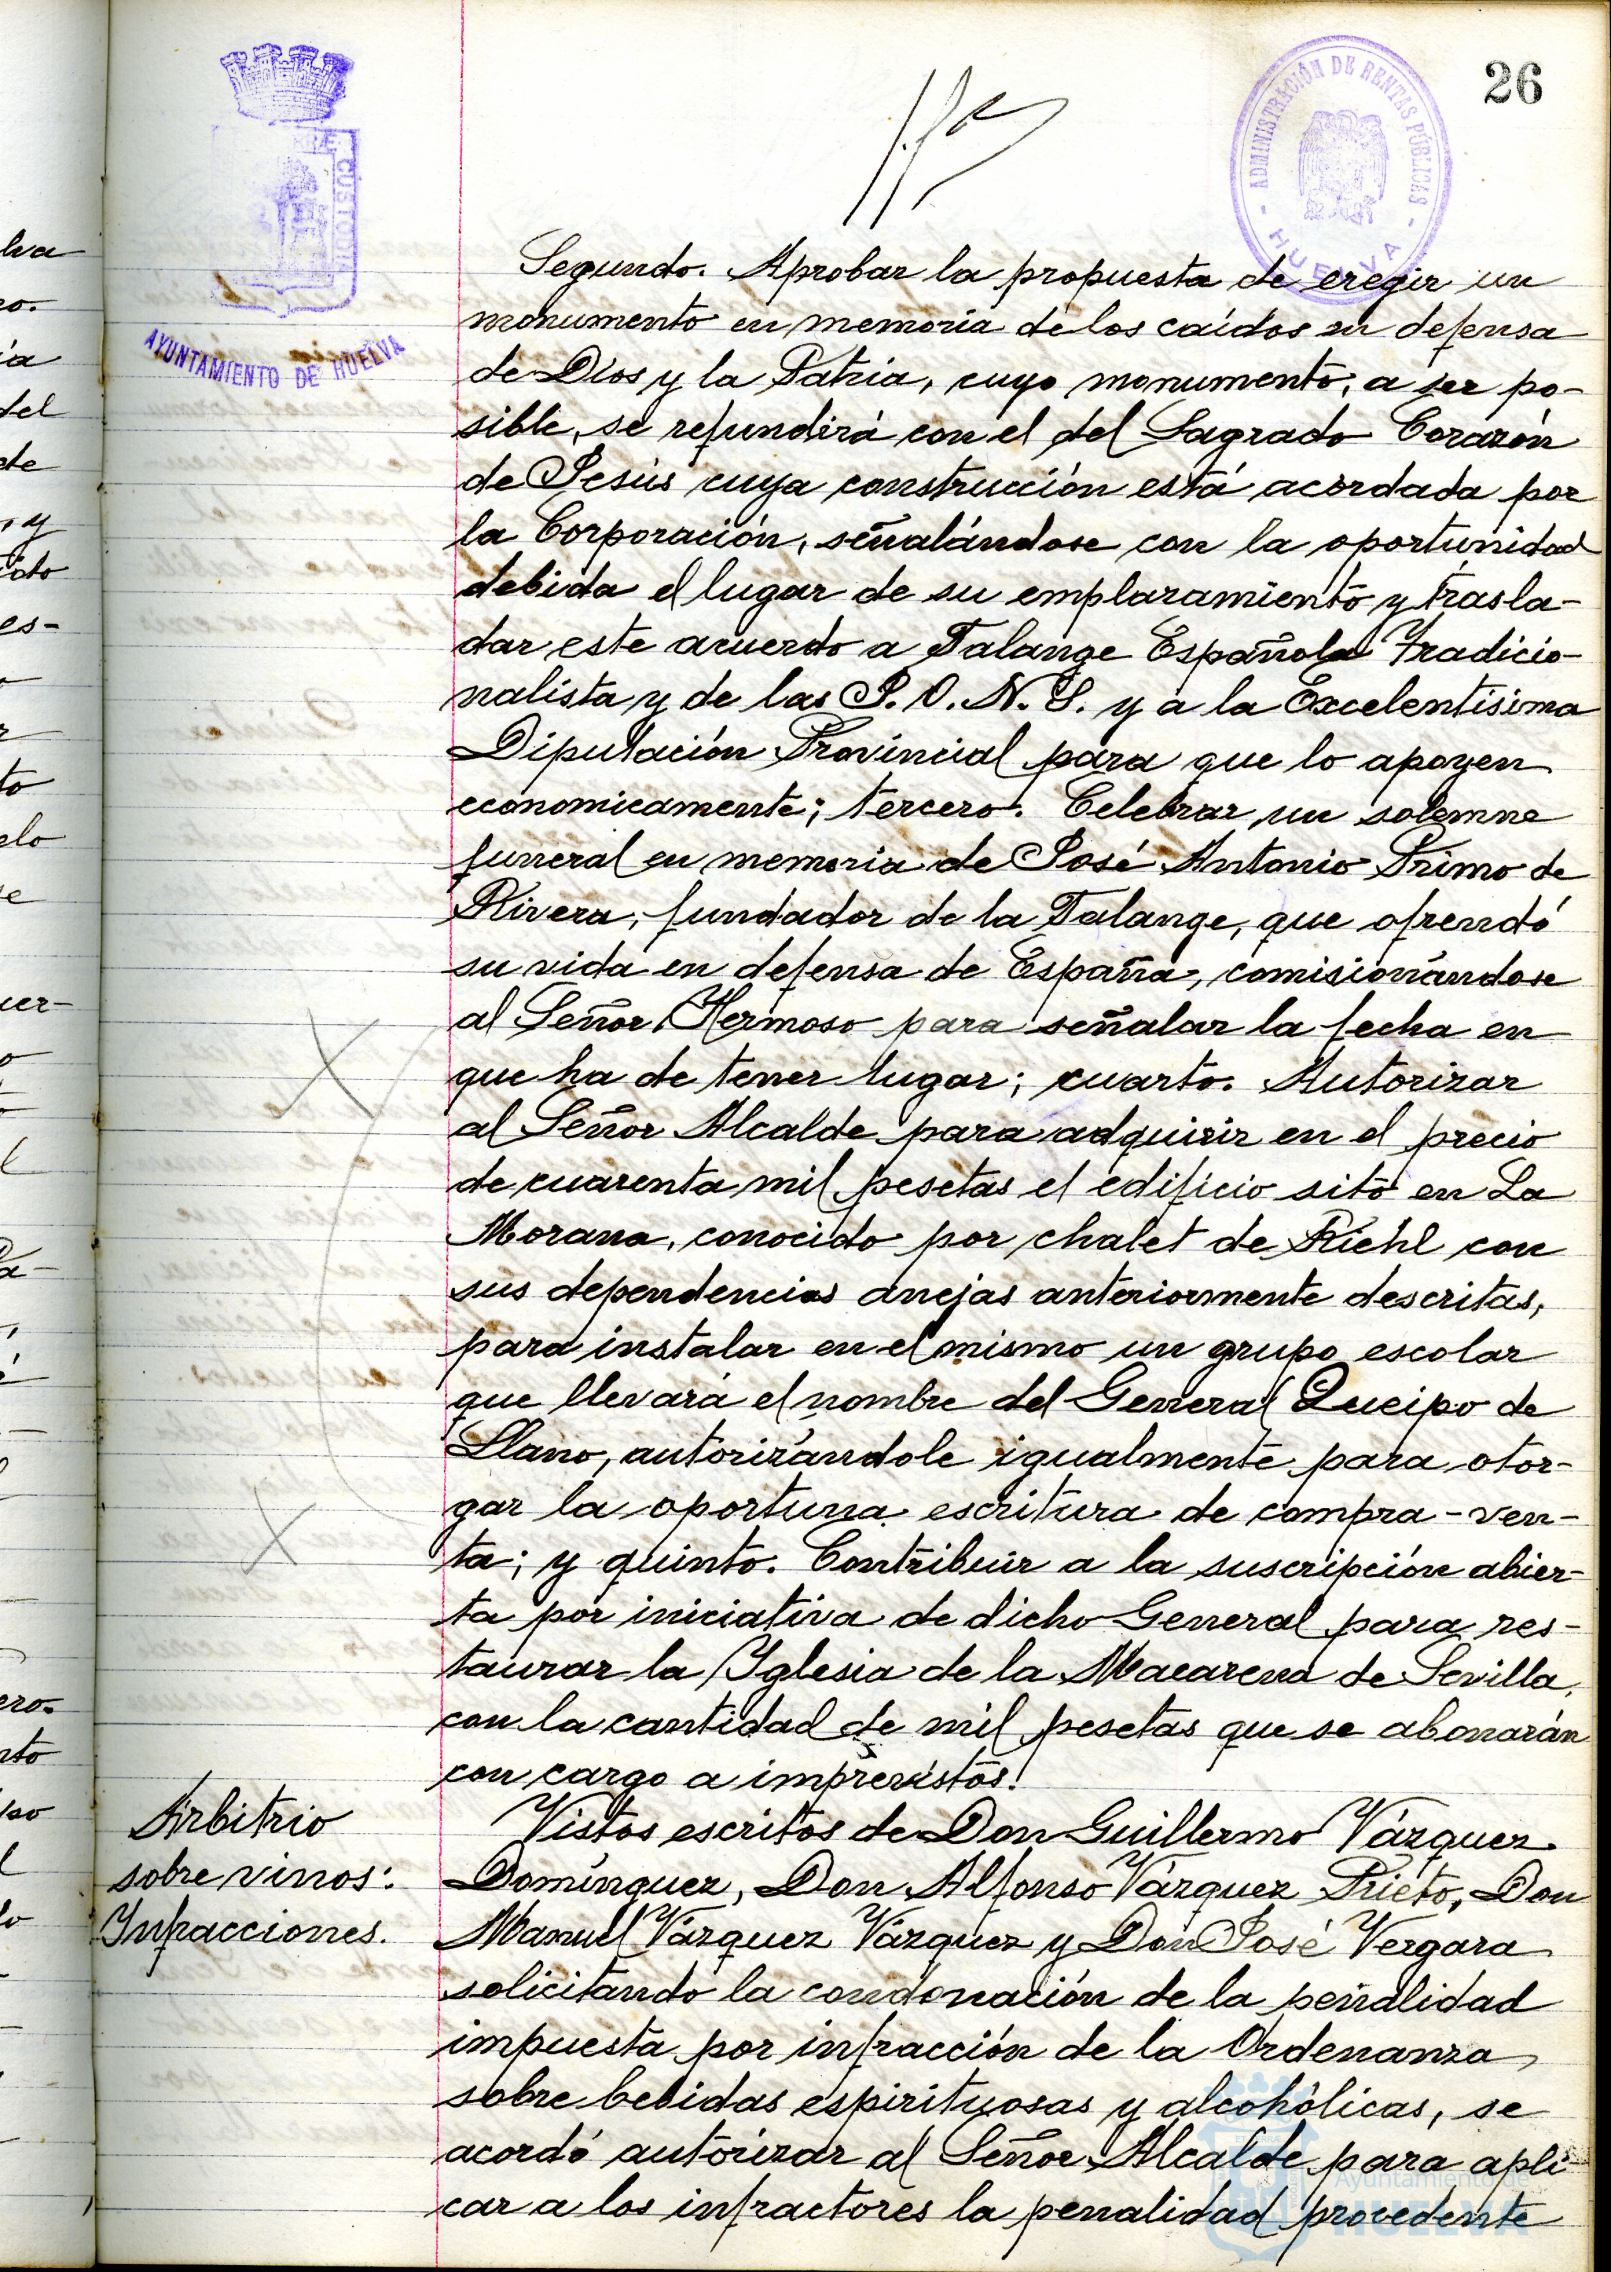 26
ADMINISTRACIÓN DE RENTAS PÚBLICAS
HUELVA
CUSTODIT
AYUNTAMIENTO DE HUELVA
Segundo. Aprobar la propuesta de eregir un
monumento en memoria de los caídos en defensa
de Dios y la Patria, cuyo monumento, a ser po-
sible, se refundirá con el del Sagrado Corazón
de Jesús cuya construcción está acordada por
la Corporación, señalándose con la oportunidad
debida el lugar de su emplazamiento y trasla-
dar este acuerdo a Falange Española Tradicio-
nalista y de las J.O.N.S. y a la Excelentísima
Diputación Provincial para que lo apoyen
economicamente; tercero. Celebrar un solemne
funeral en memoria de José Antonio Primo de
Rivera, fundador de la Falange, que ofrendó
su vida en defensa de España, comisionándose
al Señor Hermoso para señalar la fecha en
que ha de tener lugar; cuarto. Autorizar
al Señor Alcalde para adquirir en el precio
de cuarenta mil pesetas el edificio sito en La
Morana, conocido por chalet de Riehl con
sus dependencias anejas anteriormente descritas,
para instalar en el mismo un grupo escolar
que llevará el nombre del General Queipo de
Llano, autorizándole igualmente para otor-
gar la oportuna escritura de compra-ven-
ta; y quinto. Contribuir a la suscripción abier-
ta por iniciativa de dicho General para res-
taurar la Iglesia de la Macarena de Sevilla,
con la cantidad de mil pesetas que se abonarán
con cargo a imprevistos.
Arbitrio
sobre vinos:
Infracciones.
Vistos escritos de Don Guillermo Vázquez
Domínguez, Don Alfonso Vázquez Prieto, Don
Manuel Vázquez Vázquez y Don José Vergara
solicitando la condonación de la penalidad
impuesta por infracción de la Ordenanza
sobre bebidas espirituosas y alcohólicas, se
acordó autorizar al Señor Alcalde para apli-
car a los infractores la penalidad procedente
Ayuntamiento de
HUELVA